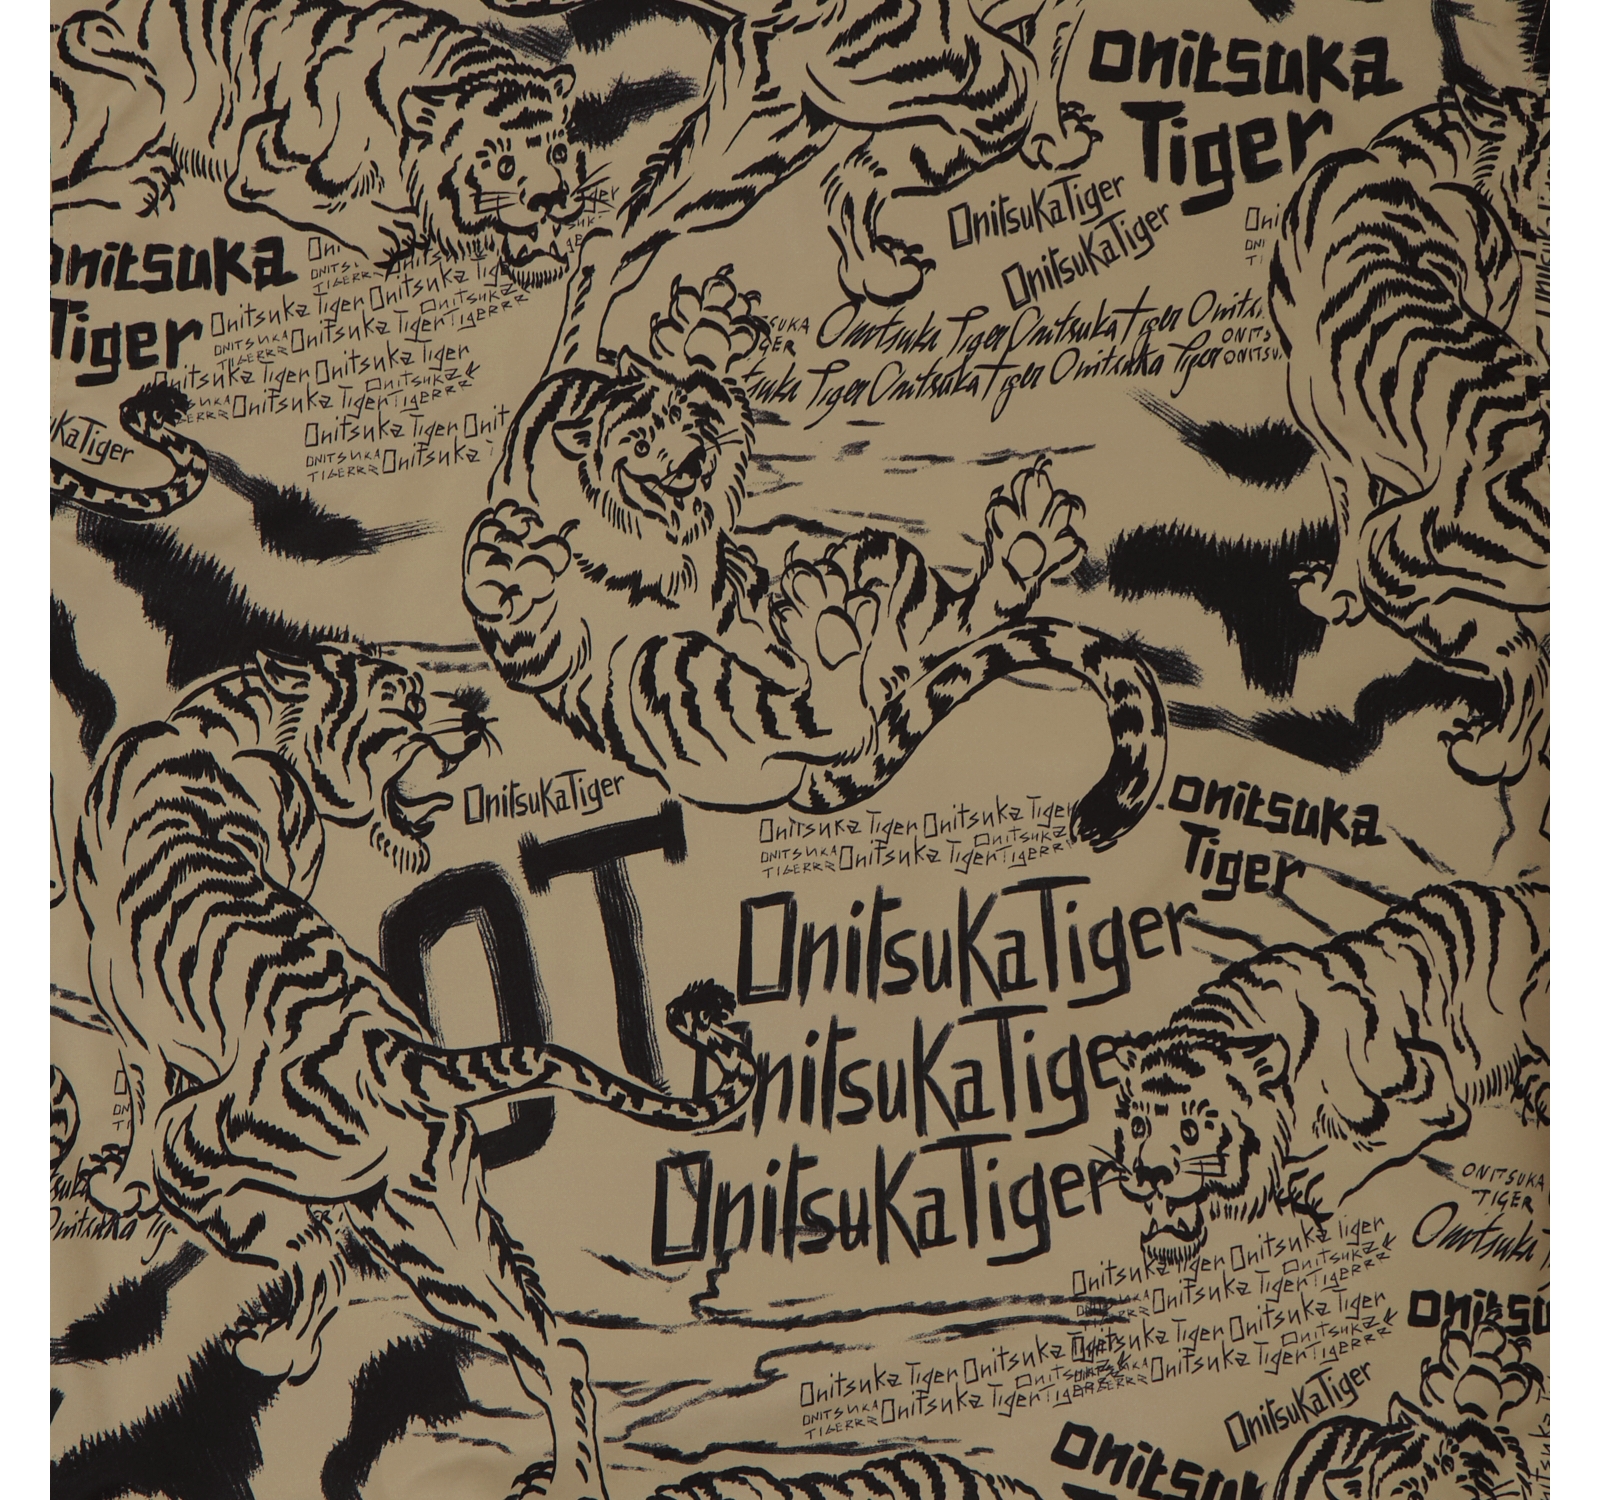 Onitsuka
Tiger
OnitsukaTiger
OnitsukaTiger
Onitsuka Tiger Onitsuka Tiger
Tiger Onitsuka Tiger Onitsuka Tiger
Onitsuka
Tiger
Onitsuka Tiger Onitsuka
ONITSUKA Onitsuka Tiger Tigerrr
Onitsuka Tiger Onitsuka Tiger
Onitsuka Tiger Tigerrr
Onitsuka Tiger
ONITSUKA Onitsuka
TIGERRR
OnitsukaTiger
OT
Onitsuka Tiger Onitsuka Tiger
ONITSUKA Onitsuka Tiger Tigerrr
TIGERRR
Onitsuka
Tiger
OnitsukaTiger
OnitsukaTiger
OnitsukaTiger
ONITSUKA
TIGER
Onitsuka
Onitsuka Tiger Onitsuka Tiger
Onitsuka Tiger Tigerrr
Onitsuka Tiger Onitsuka Tiger
Onitsuka Tiger Tigerrr
Onitsuka Tiger Onitsuka
ONITSUKA Onitsuka Tiger
TIGERRR
OnitsukaTiger